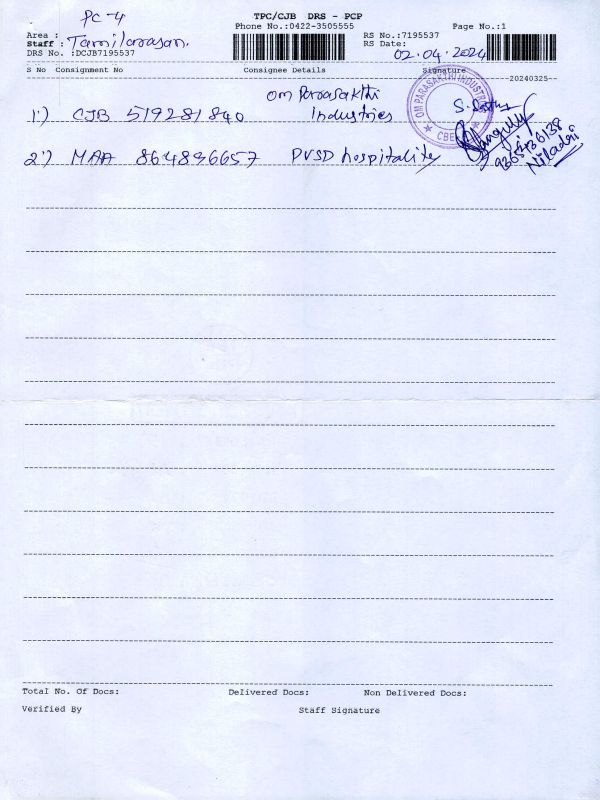 PC-4
TPC/CJB DRS - PCP
Phone No.:0422-3505555
Page No.:1
Area :
RS No.:7195537
Staff : Tamilarasan.
RS Date: 02.04.2024
DRS No. :DCJB7195537
S No Consignment No Consignee Details Signature
20240325--
1) CJB 519281840 Om Parasakthi Industries
OM PARASAKTHI INDUSTRIES
CBE
2) MAA 864896657 PVSD hospitality
Niladri
Total No. Of Docs: Delivered Docs: Non Delivered Docs:
Verified By Staff Signature